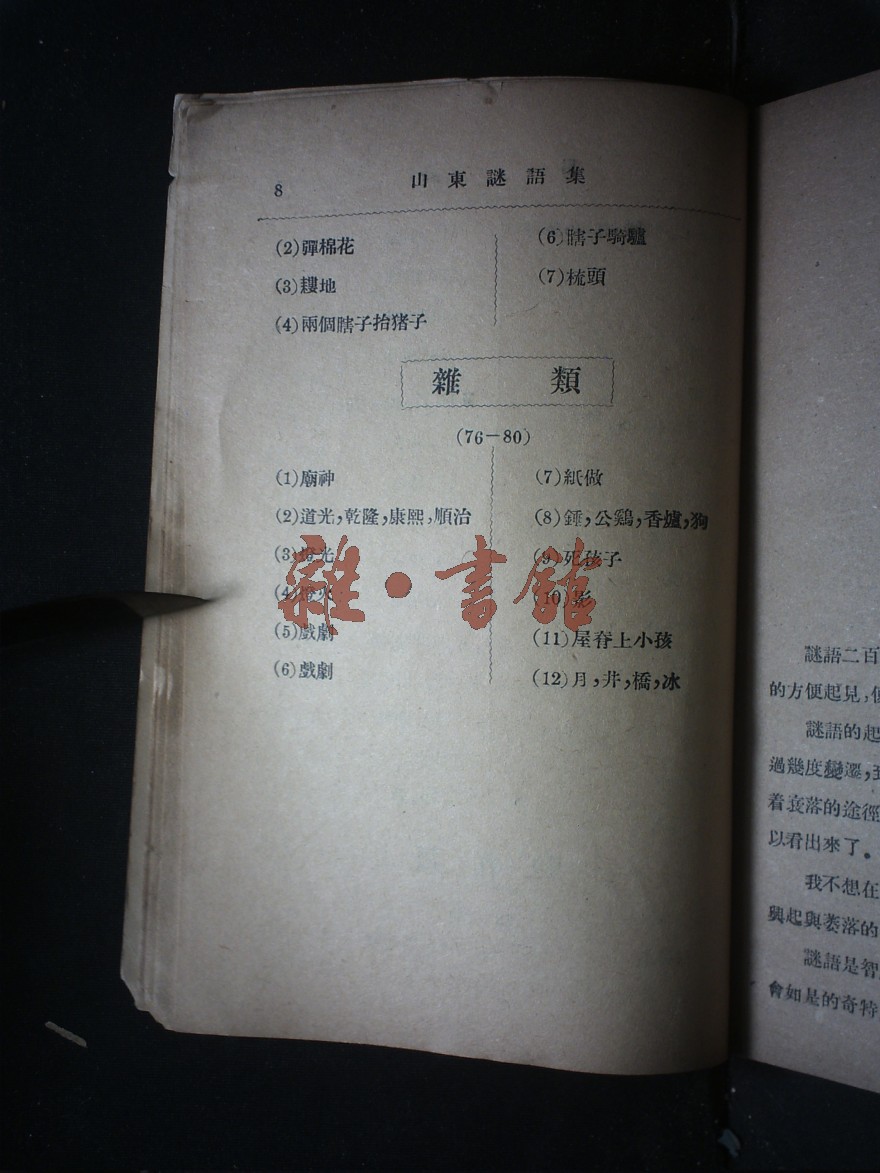 8
山東謎語集
(2)彈棉花
(3)耬地
(4)兩個瞎子抬猪子
(6)瞎子騎驢
(7)梳頭
雜 類
(76－80)
(1)廟神
(2)道光,乾隆,康熙,順治
(3)燈光
(4)燈火
(5)戲劇
(6)戲劇
(7)紙做
(8)錘,公鷄,香爐,狗
(9)死孩子
(10)影
(11)屋脊上小孩
(12)月,井,橋,冰
雜·書館
謎語二百
的方便起見,
謎語的起
過幾度變遷,
着衰落的途徑
以看出來了。
我不想在
興起與萎落的
謎語是智
會如星的奇特